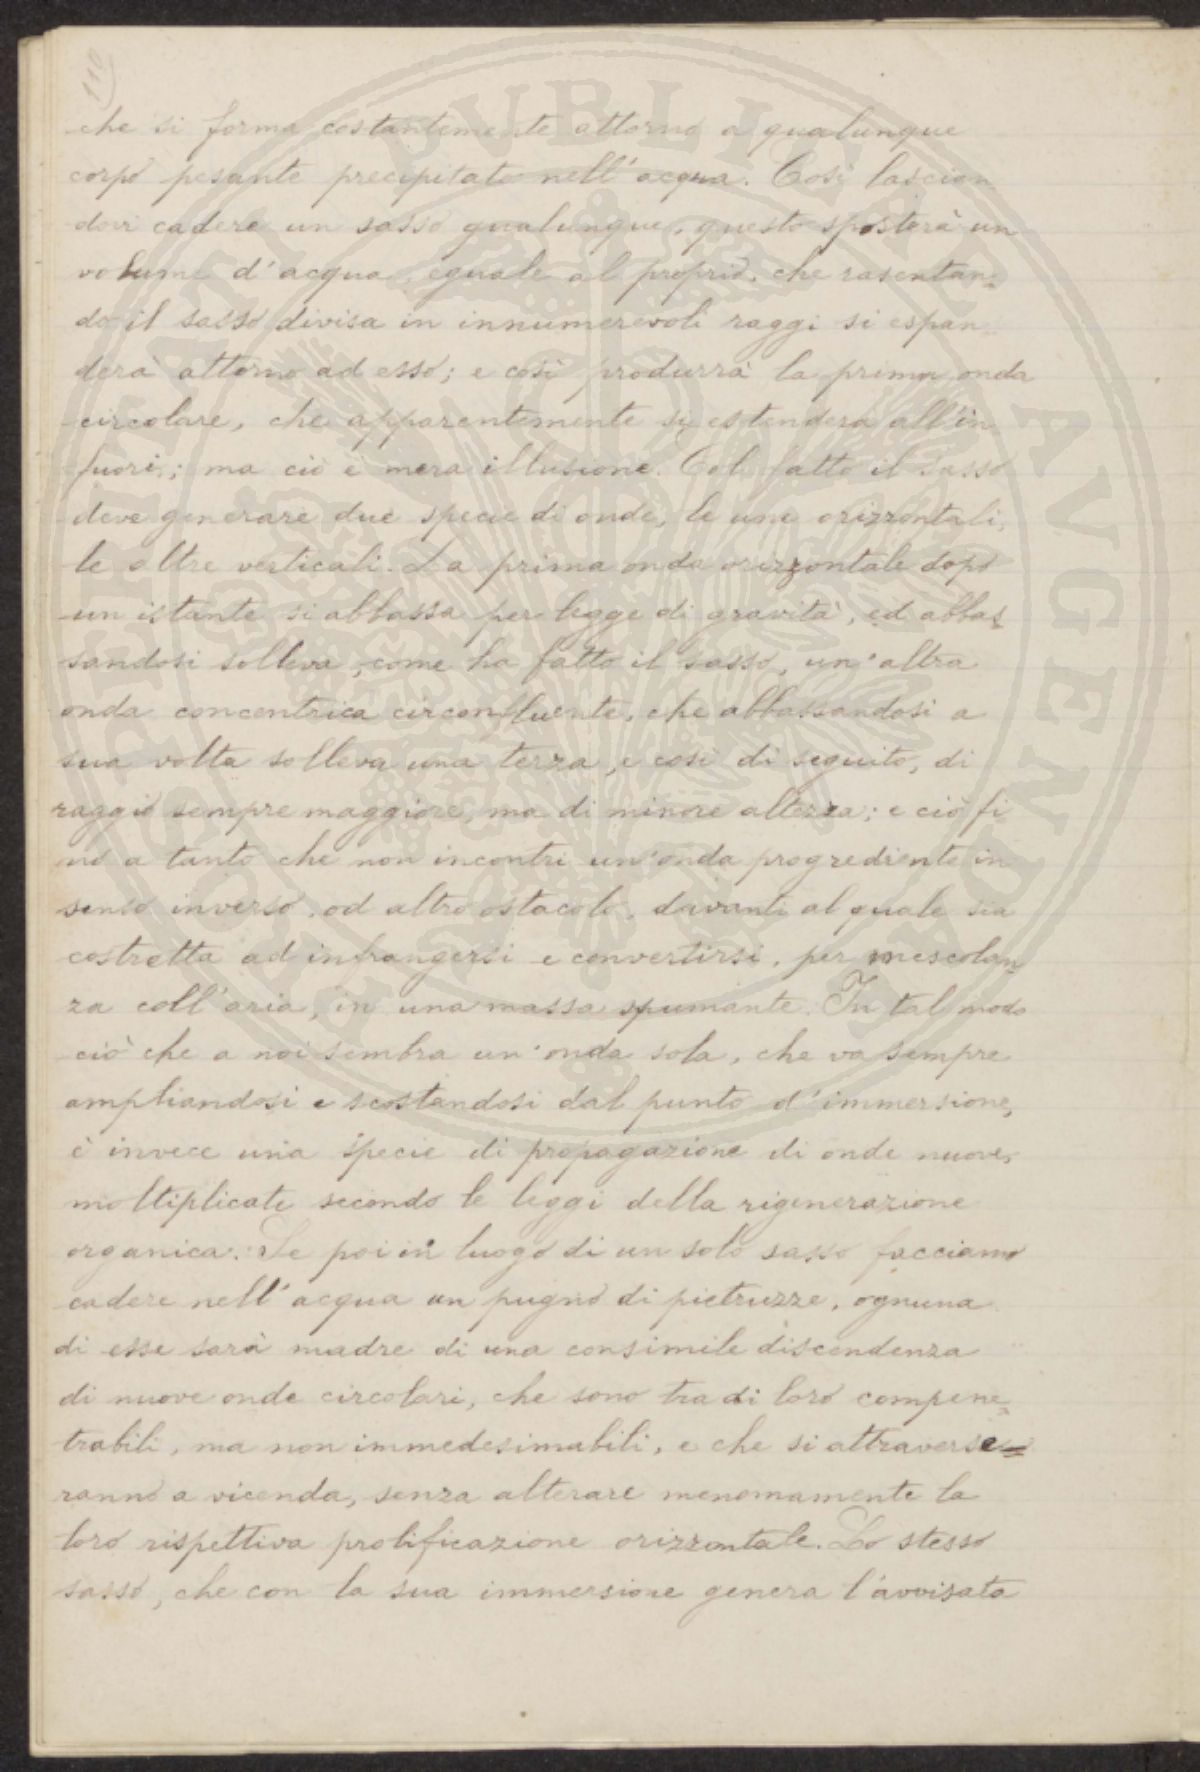 110)
che si forma costantemente attorno a qualunque
corpo pesante precipitato nell'acqua. Così lascian
dovi cadere un sasso qualunque, questo sposterà un
volume d'acqua, eguale al proprio, che rasentan=
do il sasso divisa in innumerevoli raggi si espan
derà attorno ad esso; e così produrrà la prima onda
circolare, che apparentemente si estenderà all'in
fuori; ma ciò è mera illusione. Col fatto il sasso
deve generare due specie di onde, le une orizzontali,
le altre verticali. La prima onda orizzontale dopo
un istante si abbassa per legge di gravità, ed abbas=
sandosi solleva, come ha fatto il sasso, un'altra
onda concentrica circonfluente, che abbassandosi a
sua volta solleva una terza, e così di seguito, di
raggio sempre maggiore, ma di minore altezza; e ciò fi
no a tanto che non incontri un'onda progrediente in
senso inverso, od altro ostacolo, davanti al quale sia
costretta ad infrangersi e convertirsi, per mescolan=
za coll'aria, in una massa spumante. In tal modo
ciò che a noi sembra un'onda sola, che va sempre
ampliandosi e scostandosi dal punto d'immersione,
è invece una specie di propagazione di onde nuove,
moltiplicate secondo le leggi della rigenerazione
organica. Se poi in luogo di un solo sasso facciamo
cadere nell'acqua un pugno di pietruzze, ognuna
di esse sarà madre di una consimile discendenza
di nuove onde circolari, che sono tra di loro compene=
trabili, ma non immedesimabili, e che si attraverse=
ranno a vicenda, senza alterare menomamente la
loro rispettiva prolificazione orizzontale. Lo stesso
sasso, che con la sua immersione genera l'avvisata
PVBLICAE AVGENDAE